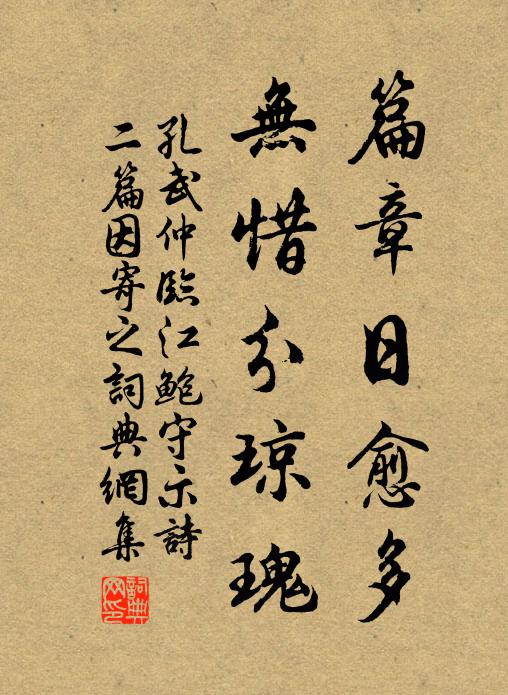 篇章日愈多
無惜分琼瑰
孔武仲臨江鮑守示詩
二篇因寄之詞典網集
詞典网印